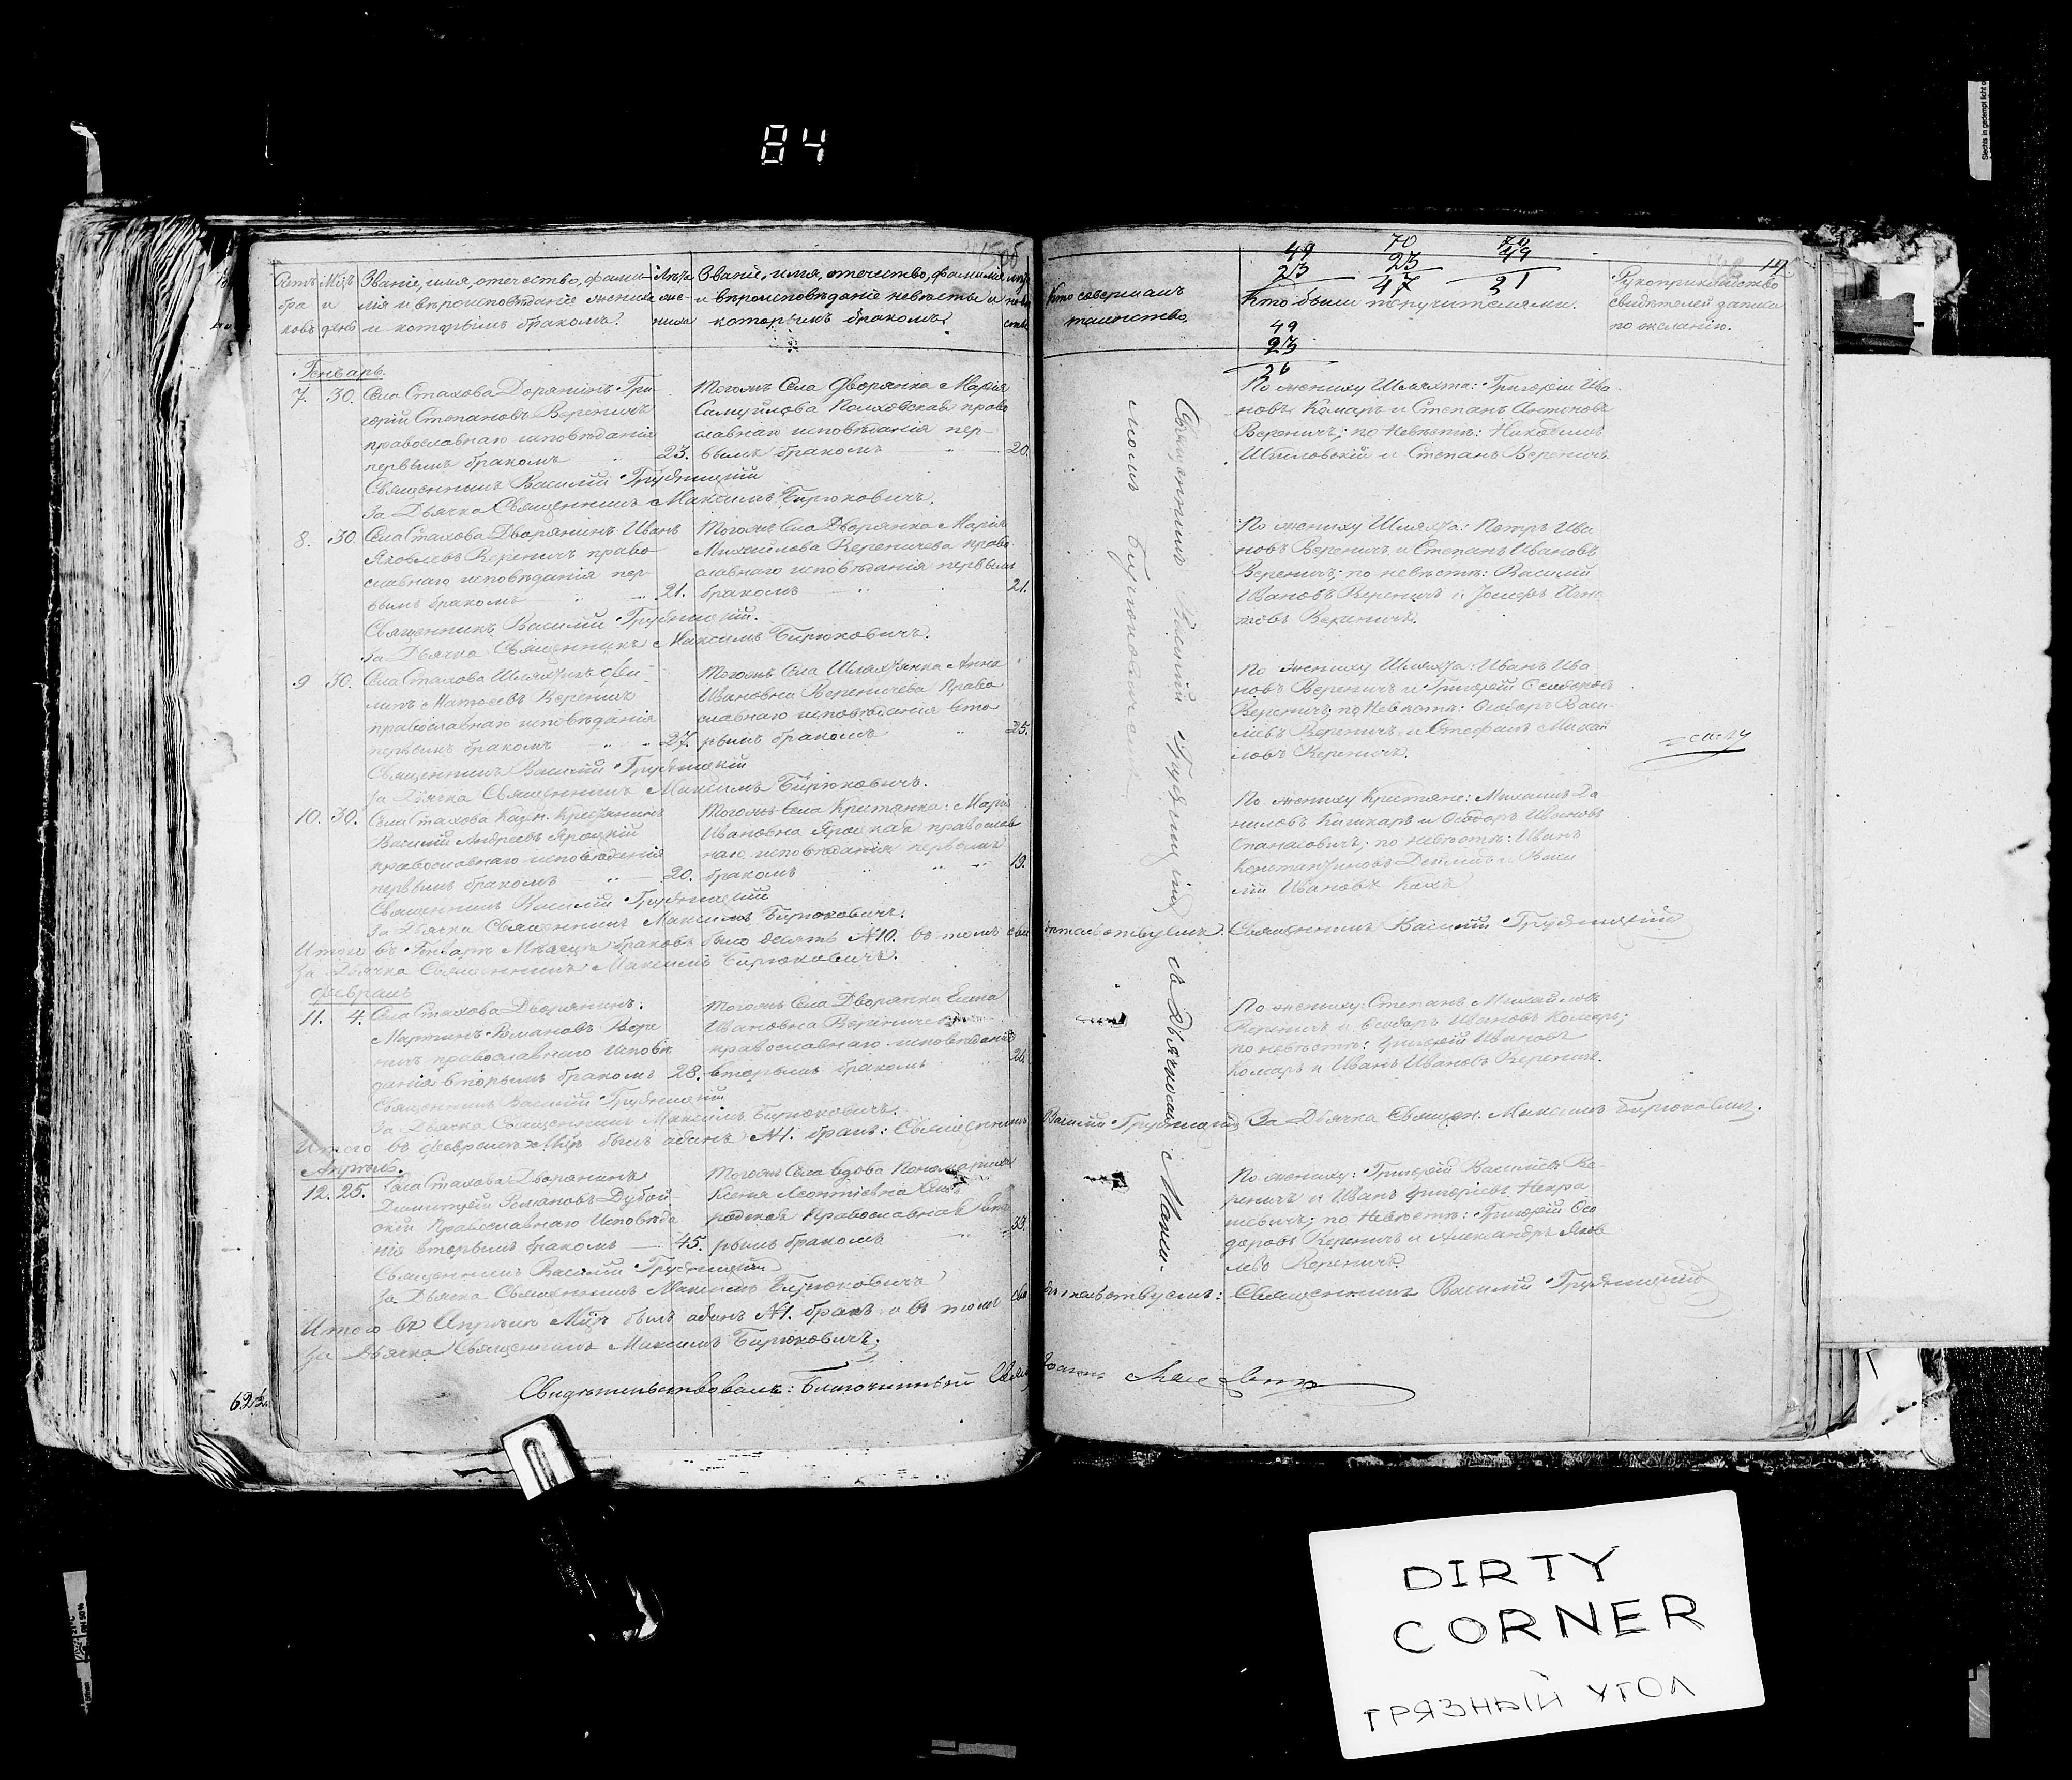 84
Счетъ Мцъ Званіе, имя, отечество, фами- Лѣта Званіе, имя, отечество, фамилія лѣта
бра и лія и вѣроисповѣданіе жениха же- и вѣроисповѣданіе невѣсты и невѣ
ковъ день и которымъ бракомъ. ниха которымъ бракомъ. сты
Генварь.
7. 30. Села Стахова Дворянинъ Гри-
горій Степановъ Вереничъ
православнаго исповѣданія
первымъ бракомъ 23.
Тогожъ Села Дворянка Марія
Самуйлова Полховская право
славнаго исповѣданія пер-
вымъ бракомъ 20.
Священникъ Василій Грудницкій
За Дьячка Священникъ Максимъ Бирюковичъ.
8. 30. Села Стахова Дворянинъ Иванъ
Яковлевъ Вереничъ право
славнаго исповѣданія пер-
вымъ бракомъ 21.
Тогожъ Села Дворянка Марія
Михайлова Вереничева право
славнаго исповѣданія первымъ
бракомъ 21.
Священникъ Василій Грудницкій.
За Дьячка Священникъ Максимъ Бирюковичъ.
9 30. Села Стахова Шляхтичъ Фи-
липъ Матвеевъ Вереничъ
православнаго исповѣданія
первымъ бракомъ 27.
Тогожъ Села Шляхтянка Анна
Ивановна Вереничева Право
славнаго исповѣданія вто
рымъ бракомъ 25.
Священникъ Василій Грудницкій
За Дьячка Священникъ Максимъ Бирюковичъ.
10. 30. Села Стахова Крестьянинъ
Василій Андреевъ Яроцкій
православнаго исповѣданія
первымъ бракомъ 20.
Тогожъ Села Кристянка: Марія
Ивановна Яроцкая православ
наго исповѣданія первымъ
бракомъ 19.
Священникъ Василій Грудницкій
За Дьячка Священникъ Максимъ Бирюковичъ.
Итого въ Генварѣ Мѣсяцѣ браковъ было десять №10. въ томъ сви
За Дьячка Священникъ Максимъ Бирюковичъ.
Февраль
11. 4. Села Стахова Дворянинъ.
Мартинъ Романовъ Вере
ничъ православнаго Исповѣ
данія вторымъ бракомъ 28.
Тогожъ Села Дворянка Елена
Ивановна Вереничева
православнаго исповѣданія
вторымъ бракомъ
Священникъ Василій Грудницкій
За Дьячка Священникъ Максимъ Бирюковичъ.
Итого въ Февралѣ Мцѣ былъ одинъ №1. бракъ: Священникъ
Апрѣль.
12. 25. Села Стахова Дворянинъ
Димитрій Романовъ Дубой
скій Православнаго Исповѣда
нія вторымъ бракомъ 45.
Тогожъ Села вдова
Ксенія Леонтіевна
Православная вто
рымъ бракомъ 33.
Священникъ Василій Грудницкій
За Дьячка Священникъ Максимъ Бирюковичъ
Итого въ Апрѣлѣ Мцѣ былъ одинъ №1. бракъ и въ томъ сви
За Дьячка Священникъ Максимъ Бирюковичъ.
Свидѣтельствовалъ: Благочинный
Кто совершалъ
таинство.
49 70
23 23 49
47 31
Кто были поручителями.
49
23
26
Рукоприкладство
свидѣтелей записи
по желанію.
Священникъ Василій Грудницкій съ Дьячкомъ Макси-
момъ Бирюковичемъ
По жениху Шляхта: Григорій Ива
новъ Комаръ и Степанъ Антоновъ
Вереничъ; по Невѣстѣ: Никодимъ
и Степанъ Вереничъ.
По жениху Шляхта: Петръ Ива
новъ Вереничъ и Степанъ Ивановъ
Вереничъ; по невѣстѣ: Василій
Ивановъ Вереничъ и Іосифъ Игна
товъ Вереничъ.
По жениху Шляхта: Иванъ Ива
новъ Вереничъ и Григорій Ѳеодоровъ
Вереничъ; по Невѣстѣ: Ѳеодоръ Васи-
лѣвъ Вереничъ и Стефанъ Михай
ловъ Вереничъ.
По жениху Кристяне: Михаилъ Да
ниловъ Кашкаръ и Ѳеодоръ Ивановъ
Спанасовичъ; по невѣстѣ: Иванъ
Константиновъ и Васи
лій Ивановъ
дѣтельствуемъ: Священникъ Василій Грудницкій
По жениху: Степанъ Михайловъ
Вереничъ и Ѳеодоръ Ивановъ Комаръ;
по невѣстѣ: Григорій Ивановъ
Комаръ и Иванъ Ивановъ Вереничъ.
Василій Грудницкій За Дьячка Священ. Максимъ Бирюковичъ.
По жениху: Григорій Василіевъ Ве-
реничъ и Иванъ Григоріевъ Некра
шевичъ; по Невѣстѣ: Григорій Ѳео
доровъ Вереничъ и Александръ Яков
левъ Вереничъ.
дѣтельствуемъ: Священникъ Василій Грудницкій
DIRTY
CORNER
ГРЯЗНЫЙ УГОЛ